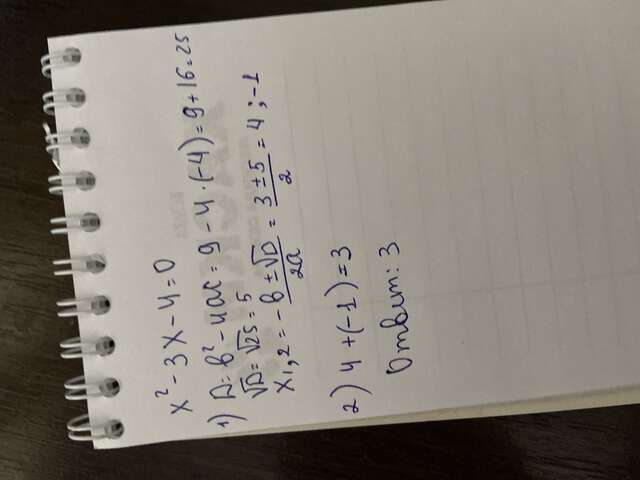 x² - 3x - 4 = 0
1) D = b² - 4ac = 9 - 4 · (-4) = 9 + 16 = 25
√D = √25 = 5
x₁,₂ = -b ± √D / 2a = 3 ± 5 / 2 = 4 ; -1
2) 4 + (-1) = 3
Ответ: 3